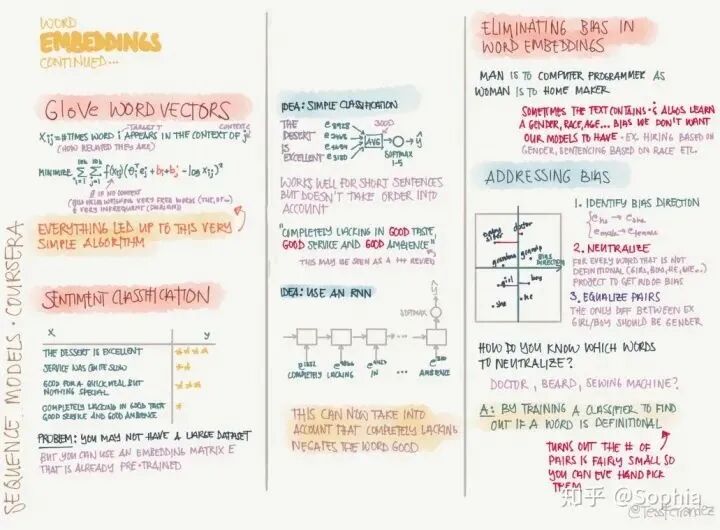 WORD
EMBEDDINGS
CONTINUED...
GloVe WORD VECTORS
Xij = #TIMES WORD i APPEARS IN THE CONTEXT OF j
TARGET
CONTEXT
(HOW RELATED THEY ARE)
MINIMIZE
10k 10k
i=1 j=1
Ø IF NO CONTEXT
EVERYTHING LED UP TO THIS VERY
SIMPLE ALGORITHM
SENTIMENT CLASSIFICATION
X y
THE DESSERT IS EXCELLENT
SERVICE WAS QUITE SLOW
GOOD FOR A QUICK MEAL BUT
NOTHING SPECIAL
COMPLETELY LACKING IN GOOD TASTE
GOOD SERVICE AND GOOD AMBIENCE
PROBLEM: YOU MAY NOT HAVE A LARGE DATASET
BUT YOU CAN USE AN EMBEDDING MATRIX E
THAT IS ALREADY PRE-TRAINED
SEQUENCE MODELS · COURSERA
IDEA: SIMPLE CLASSIFICATION
THE
DESSERT
IS
EXCELLENT
AVG
300D
ŷ
SOFTMAX
1-5
WORKS WELL FOR SHORT SENTENCES
BUT DOESN'T TAKE ORDER INTO
ACCOUNT
"COMPLETELY LACKING IN GOOD TASTE,
GOOD SERVICE AND GOOD AMBIENCE"
THIS MAY BE SEEN AS A +++ REVIEW
IDEA: USE AN RNN
ŷ
SOFTMAX
...
COMPLETELY LACKING IN ... AMBIENCE
THIS CAN NOW TAKE INTO
ACCOUNT THAT COMPLETELY LACKING
NEGATES THE WORD GOOD
ELIMINATING BIAS IN
WORD EMBEDDINGS
MAN IS TO COMPUTER PROGRAMMER AS
WOMAN IS TO HOME MAKER
SOMETIMES THE TEXT CONTAINS & ALGOS LEARN
A GENDER, RACE, AGE... BIAS WE DON'T WANT
OUR MODELS TO HAVE · EX. HIRING BASED ON
GENDER, SENTENCING BASED ON RACE ETC.
ADDRESSING BIAS
baby
sitter
doctor
grandma
grandpa
BIAS
DIRECTION
girl
boy
she
he
1. IDENTIFY BIAS DIRECTION
e he → e she
e male → e female
2. NEUTRALIZE
FOR EVERY WORD THAT IS NOT
DEFINITIONAL (GIRL, BOY, HE, WE...)
PROJECT TO GET RID OF BIAS
3. EQUALIZE PAIRS
THE ONLY DIFF BETWEEN EX
GIRL/BOY SHOULD BE GENDER
HOW DO YOU KNOW WHICH WORDS
TO NEUTRALIZE?
DOCTOR, BEARD, SEWING MACHINE?
A: BY TRAINING A CLASSIFIER TO FIND
OUT IF A WORD IS DEFINITIONAL
TURNS OUT THE # OF
PAIRS IS FAIRLY SMALL SO
YOU CAN EVE HAND PICK
THEM
知乎 @Sophia
@TessFerrandez